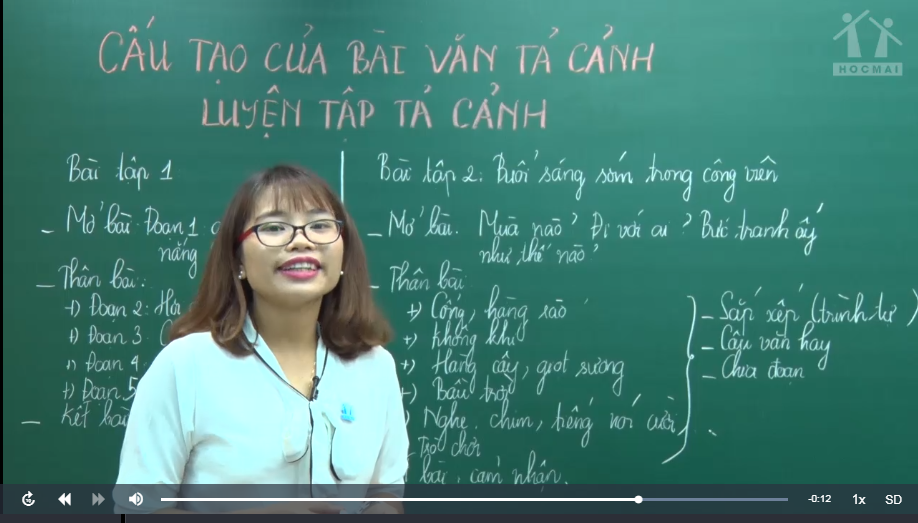 CẤU TẠO CỦA BÀI VĂN TẢ CẢNH
LUYỆN TẬP TẢ CẢNH
HOCMAI
Bài tập 1
- Mở bài: Đoạn 1:
nắng
- Thân bài:
+) Đoạn 2:
+) Đoạn 3:
+) Đoạn 4
+) Đoạn 5
- Kết bài
Bài tập 2: Buổi sáng sớm trong công viên
- Mở bài. Mùa nào? Đi với ai? Bức tranh ấy
như thế nào?
- Thân bài:
+) Cổng, hàng rào
+) Không khí
+) Hàng cây, giọt sương
+) Bầu trời
) Nghe. chim, tiếng nói cười,
Trò chơi
bài. cảm nhận.
- Sắp xếp (trình tự)
- Câu văn hay
- Chia đoạn
-0:12 1x SD